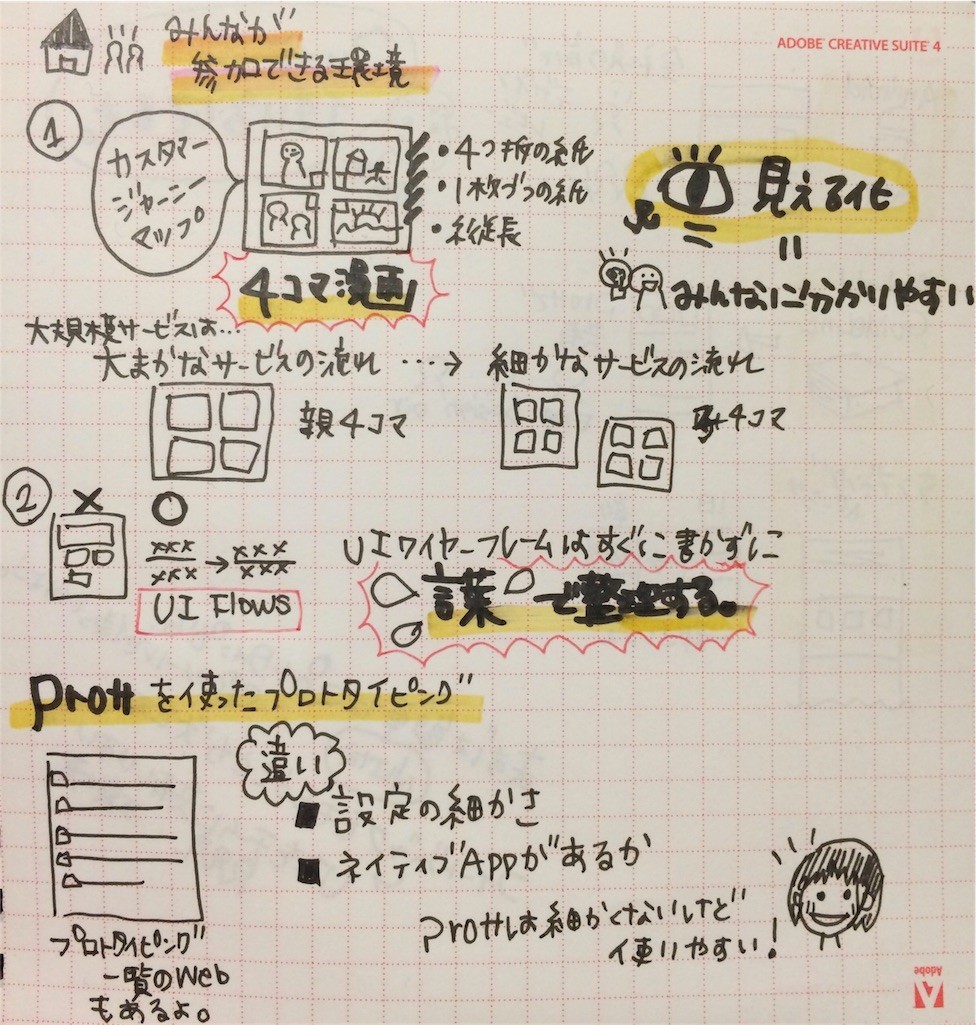 みんなが
参加できる環境
ADOBE® CREATIVE SUITE® 4
1
カスタマー
ジャーニー
マップ
・4つ折の紙
・1枚づつの紙
・縦長
4コマ漫画
見える化
=
みんなに分かりやすい
大規模サービスは…
大まかなサービスの流れ ・・・→ 細かなサービスの流れ
親4コマ
子4コマ
2
× ○
×××
×××
→
×××
×××
UI Flows
UIワイヤーフレームはすぐに書かずに
言葉で整理する。
Prottを使ったプロトタイピング
違い
■設定の細かさ
■ネイティブAppがあるか
Prottは細かくないけど
使いやすい!
プロトタイピング
一覧のWeb
もあるよ。
Adobe